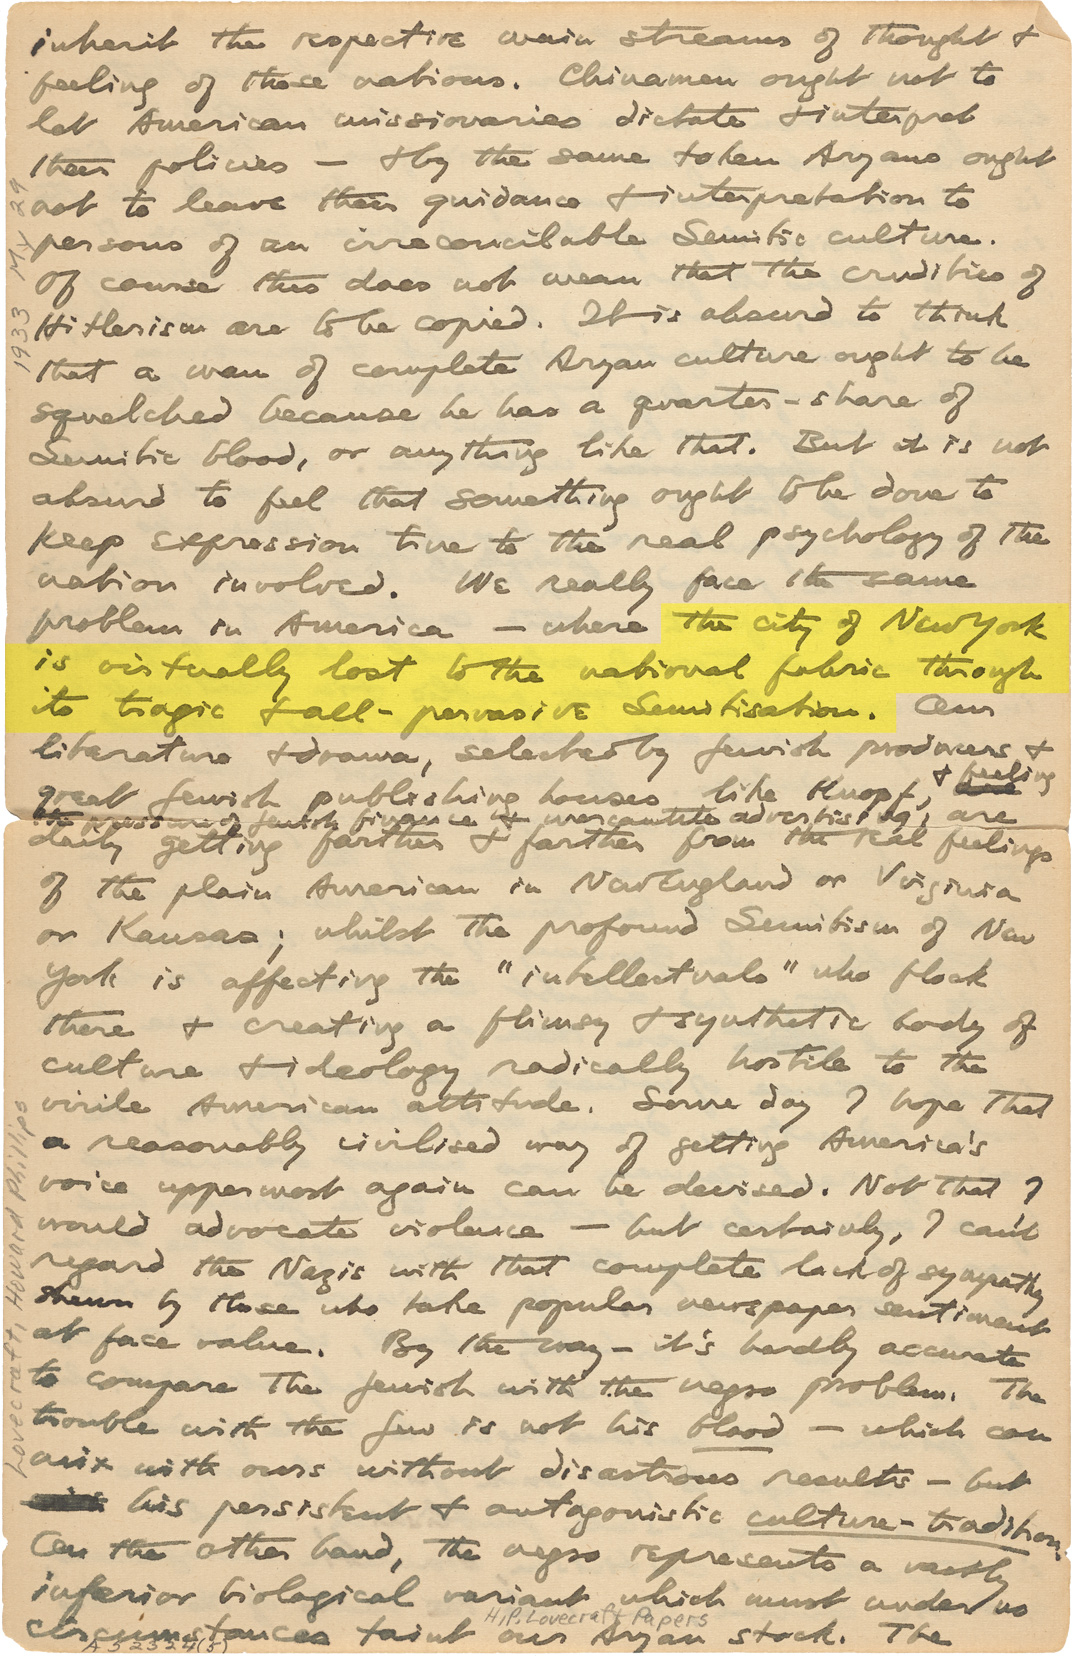 inherit the respective main streams of thought &
feeling of those nations. Chinamen ought not to
let American missionaries dictate & interpret
their policies — & by the same token Aryans ought
not to leave their guidance & interpretation to
persons of an irreconcilable Semitic culture.
Of course this does not mean that the crudities of
Hitlerism are to be copied. It is absurd to think
that a man of complete Aryan culture ought to be
squelched because he has a quarter-share of
Semitic blood, or anything like that. But it is not
absurd to feel that something ought to be done to
keep expression true to the real psychology of the
nation involved. We really face the same
problem in America — where the city of New York
is virtually lost to the national fabric through
its tragic & all-pervasive Semitisation. Our
literature & drama, selected by Jewish producers &
great Jewish publishing houses like Knopf, & feeling
the pressure of Jewish finance & mercantile advertising, are
daily getting farther & farther from the real feelings
of the plain American in New England or Virginia
or Kansas; whilst the profound Semitism of New
York is affecting the "intellectuals" who flock
there & creating a flimsy & synthetic body of
culture & ideology radically hostile to the
virile American attitude. Some day I hope that
a reasonably civilised way of getting America's
voice uppermost again can be devised. Not that I
would advocate violence — but certainly, I can't
regard the Nazis with that complete lack of sympathy
shewn by those who take popular newspaper sentiment
at face value. By the way — it's hardly accurate
to compare the Jewish with the negro problem. The
trouble with the Jew is not his blood — which can
mix with ours without disastrous results — but
his persistent & antagonistic culture-tradition.
On the other hand, the negro represents a vastly
inferior biological variant which must under no
circumstances taint our Aryan stock. The
1933 My 29
Lovecraft, Howard Phillips
H.P. Lovecraft Papers
A52324(5)